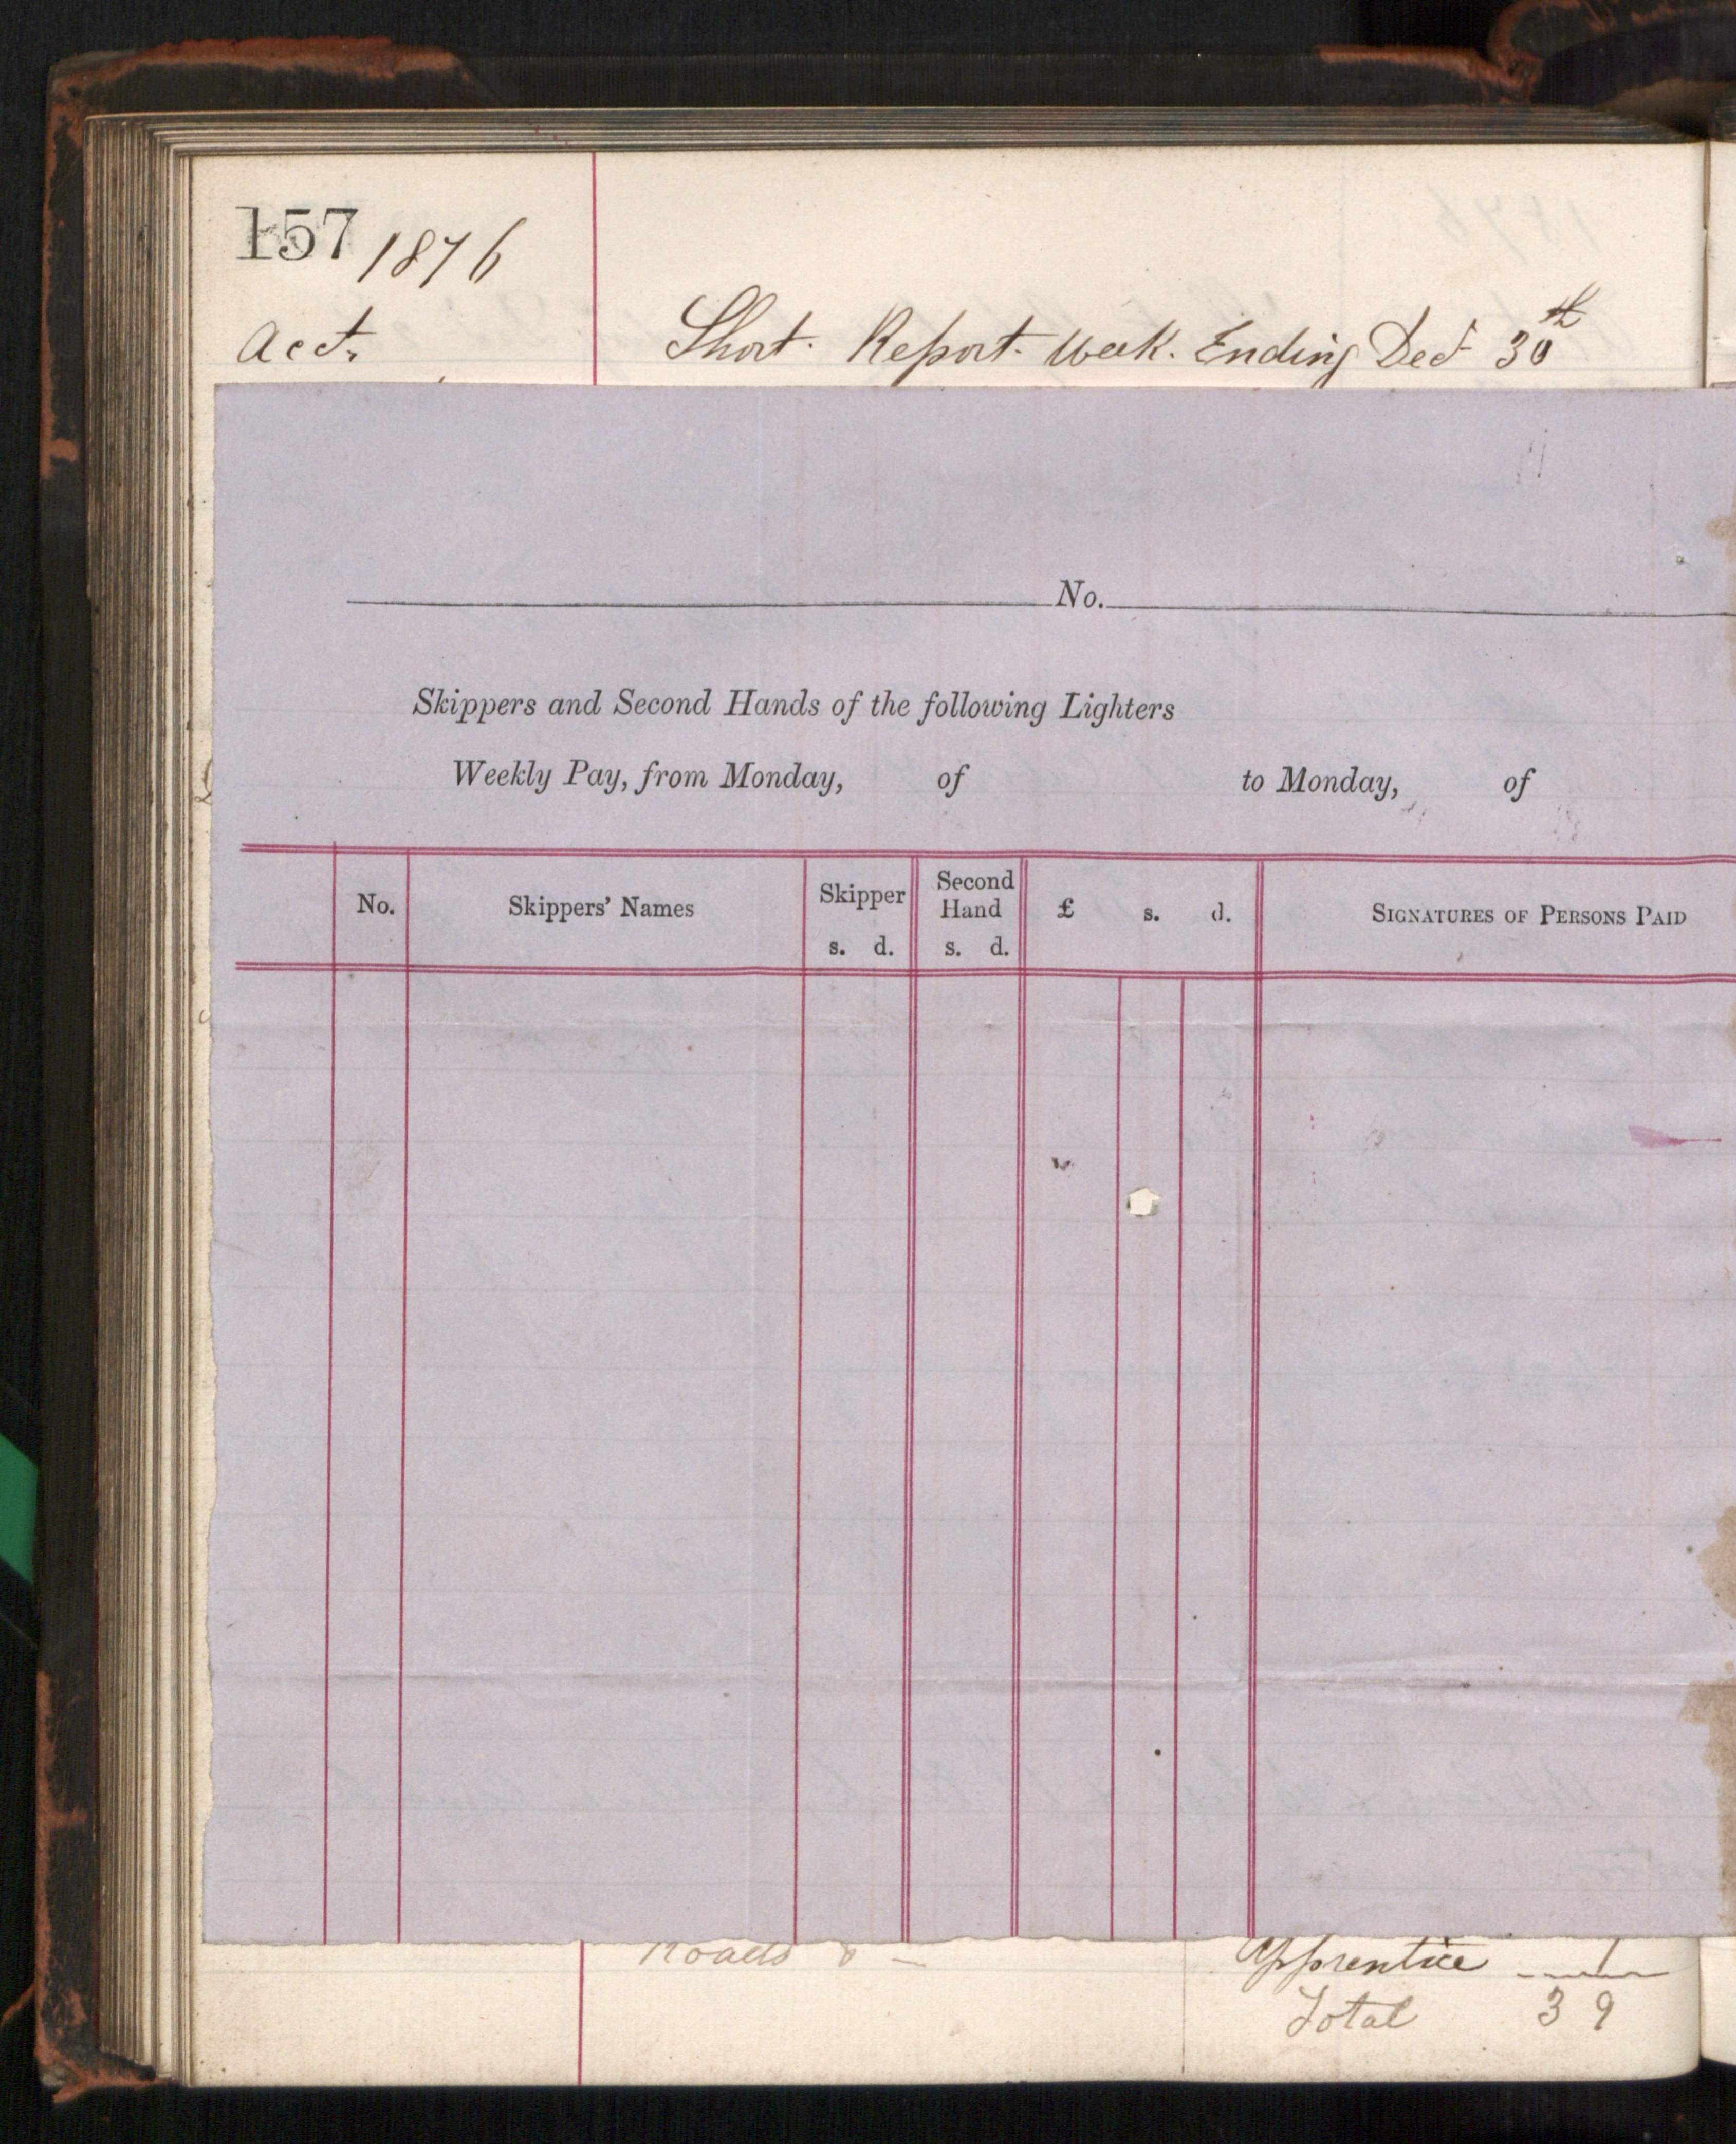 157 1876
Acct. Short. Report. Week. Ending Dec 30th
No.
Skippers and Second Hands of the following Lighters
Weekly Pay, from Monday, of to Monday, of
No. Skippers' Names Skipper s. d. Second Hand s. d. £ s. d. SIGNATURES OF PERSONS PAID
Roads 8 Apprentice 1
Total 39